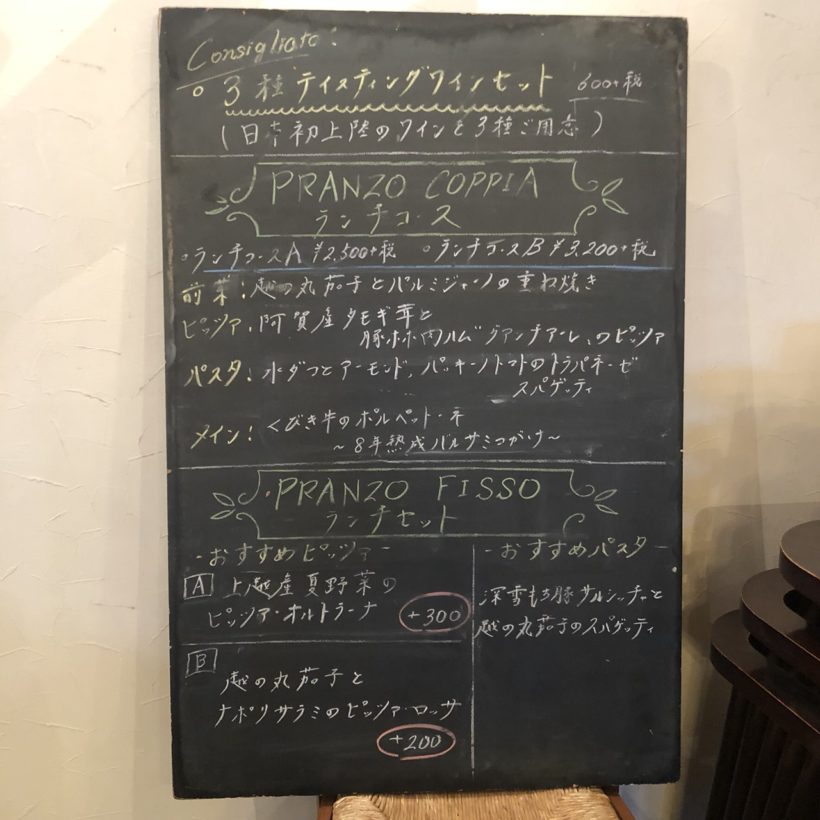 Consigliato:
○ 3種テイスティングワインセット 600+税
(日本初上陸のワインを3種ご用意)
PRANZO COPPIA
ランチコース
○ランチコースA ¥2,500+税 ○ランチコースB ¥3,200+税
前菜:越の丸茄子とパルミジャーノの重ね焼き
ピッツァ:阿賀産タモギ茸と
豚ホホ肉ハム"グアンチアーレ"のピッツァ
パスタ:水ダコとアーモンド、パッキーノトマトのトラパネーゼ
スパゲッティ
メイン:くびき牛のポルペットーネ
~8年熟成バルサミコがけ~
PRANZO FISSO
ランチセット
-おすすめピッツァ-
A 上越産夏野菜の
ピッツァ・オルトラーナ +300
B 越の丸茄子と
ナポリサラミのピッツァ・ロッサ
+200
-おすすめパスタ-
深雪もち豚サルシッチャと
越の丸茄子のスパゲッティ